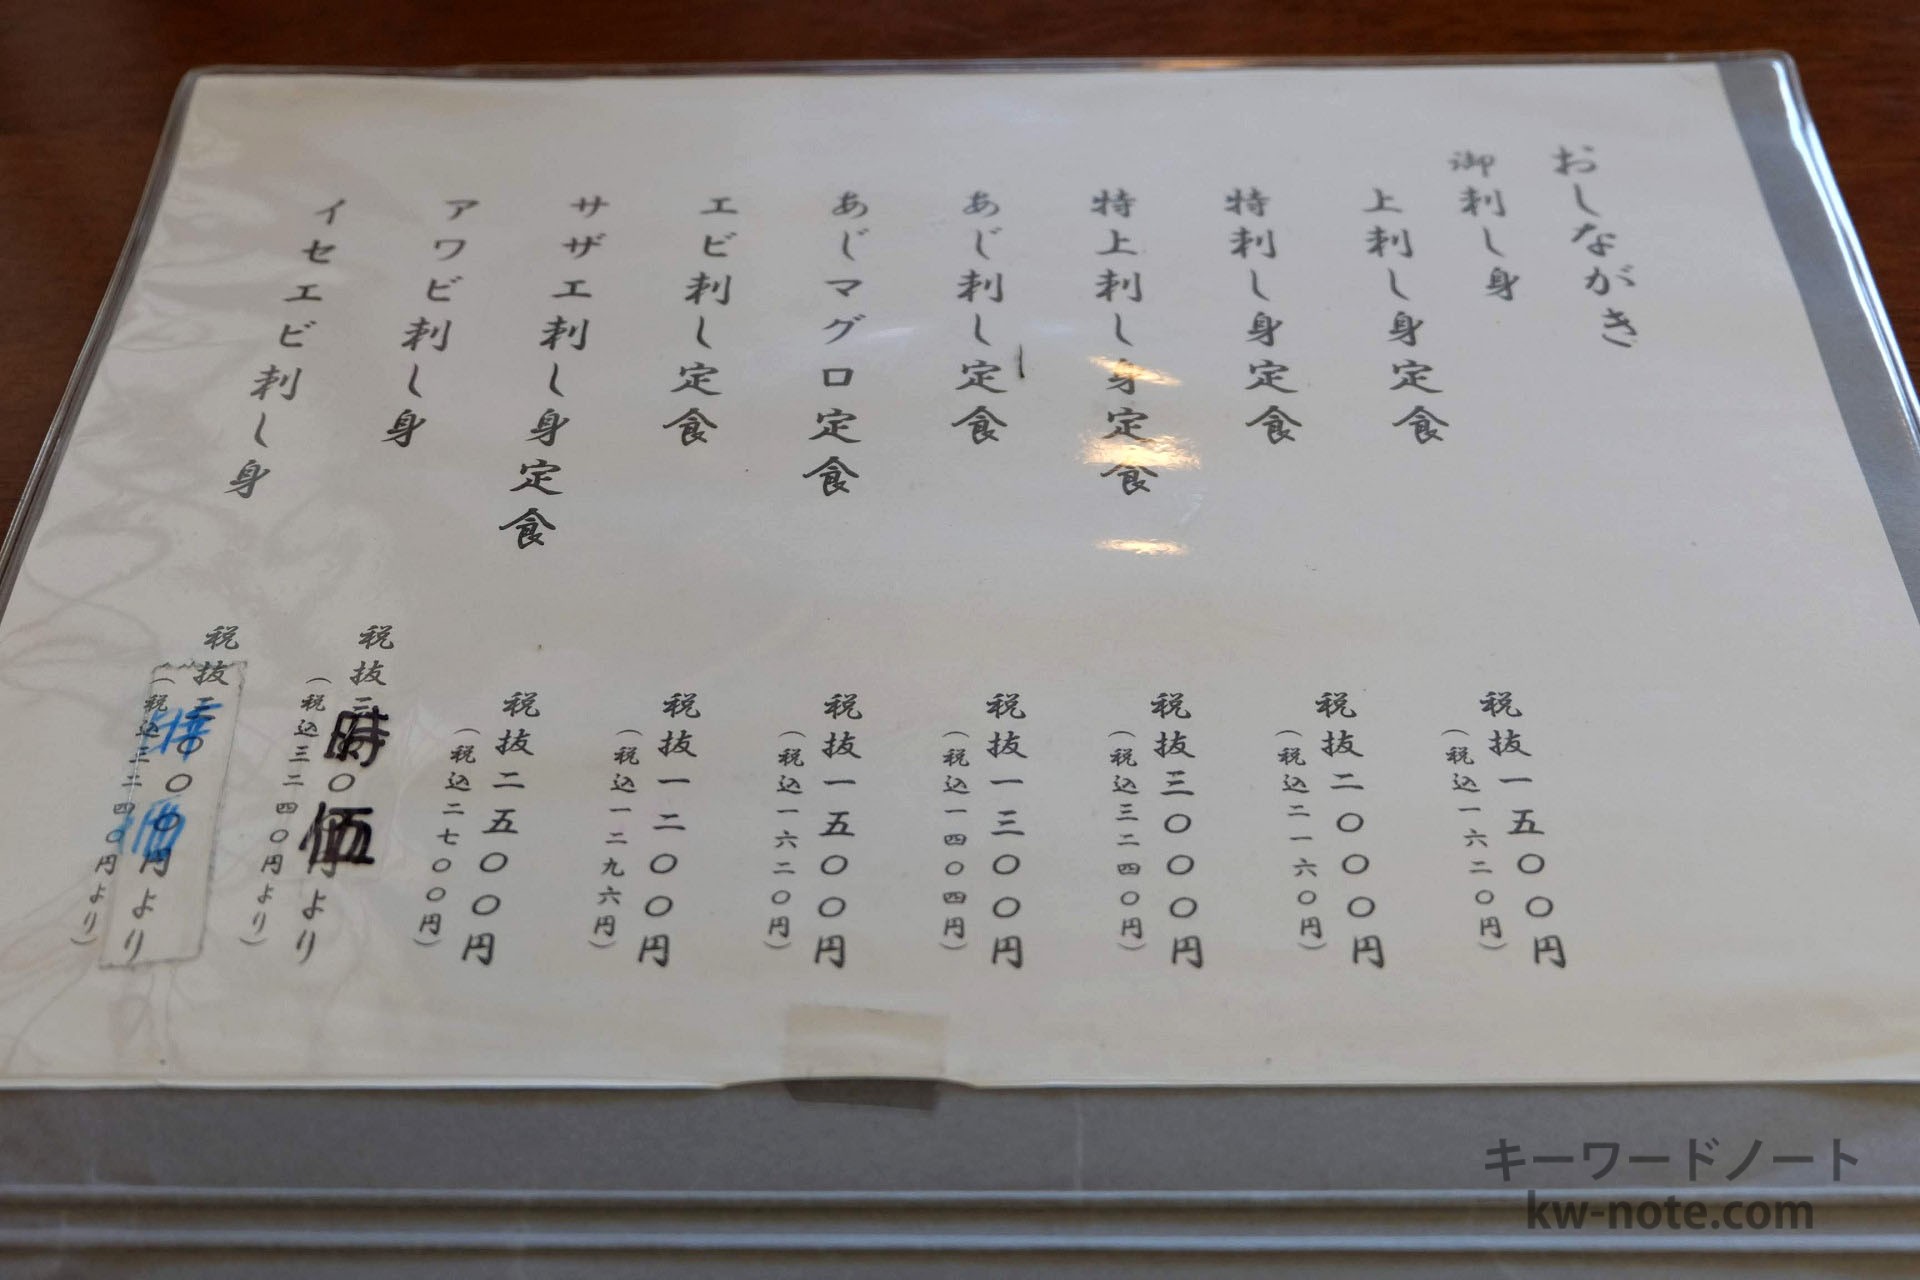 おしながき
御刺し身
上刺し身定食
税抜一五〇〇円
(税込一六二〇円)
特刺し身定食
税抜二〇〇〇円
(税込二一六〇円)
特上刺し身定食
税抜三〇〇〇円
(税込三二四〇円)
あじ刺し定食
税抜一三〇〇円
(税込一四〇四円)
あじマグロ定食
税抜一五〇〇円
(税込一六二〇円)
エビ刺し定食
税抜一二〇〇円
(税込一二九六円)
サザエ刺し身定食
税抜二五〇〇円
(税込二七〇〇円)
アワビ刺し身
税抜 時価 より
(税込三二四〇円より)
イセエビ刺し身
税抜 時価 円より
(税込三二四〇円より)
キーワードノート
kw-note.com